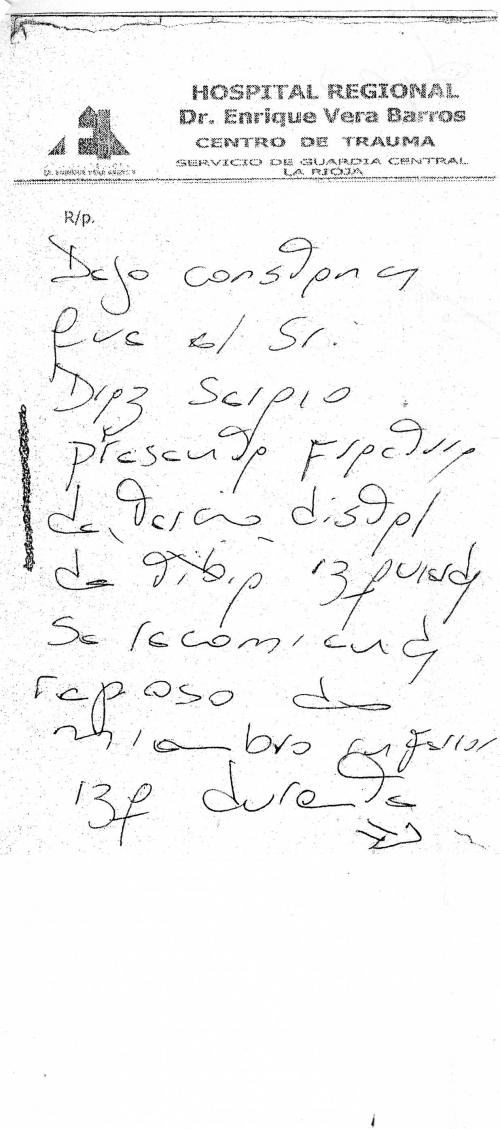 HOSPITAL REGIONAL
Dr. Enrique Vera Barros
CENTRO DE TRAUMA
SERVICIO DE GUARDIA CENTRAL
LA RIOJA
DR. ENRIQUE VERA BARROS
R/p.
Dejo constancia
que el Sr.
Diaz Sergio
presenta Fractura
de tercio distal
de tibia izquierda
Se recomienda
reposo de
miembro inferior
izq durante